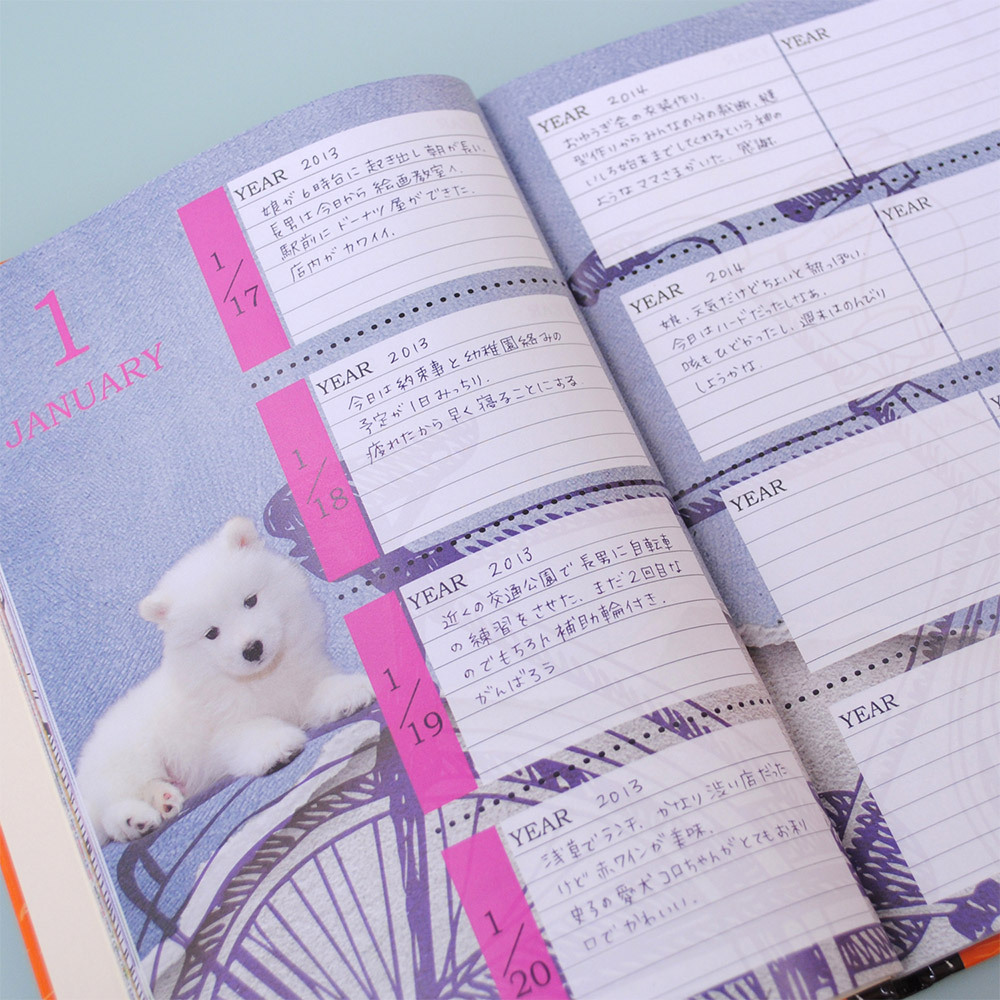 1
JANUARY
1/17
YEAR 2013
娘が6時台に起き出し朝が長い.
長男は今日から絵画教室へ.
駅前にドーナツ屋ができた.
店内がカワイイ.
1/18
YEAR 2013
今日は約束事と幼稚園絡みの
予定が1日みっちり.
疲れたから早く寝ることにする
1/19
YEAR 2013
近くの交通公園で長男に自転車
の練習をさせた. まだ2回目な
のでもちろん補助輪付き.
がんばろう
1/20
YEAR 2013
浅草でランチ. かなり渋い店だった
けど赤ワインが美味.
史ろの愛犬コロちゃんがとてもお利
口でかわいい.
YEAR 2014
おゆうぎ会の衣装作り.
型作りからみんなの分の裁断、縫
いしろ始末までしてくれるという神の
ようなママさまがいた. 感謝
YEAR
YEAR 2014
娘、天気だけどちょいと熱っぽい.
今日はハードだったしなぁ.
咳もひどかったし、週末はのんびり
しようかな.
YEAR
YEAR
YEAR